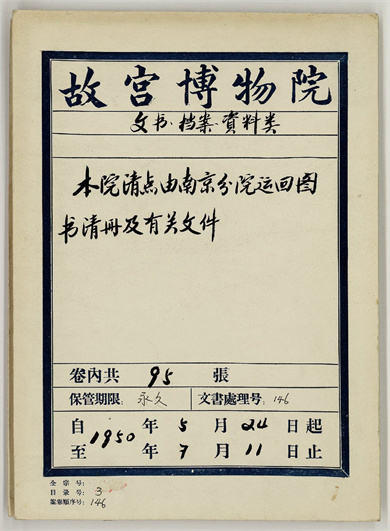 故宫博物院
文书·档案·資料类
本院清点由南京分院运回图
书清册及有关文件
卷內共 95 張
保管期限: 永久 文書處理号: 146
自 1950 年 5 月 24 日起
至 年 7 月 11 日止
全宗号:
目录号: 3
案卷順序号: 146